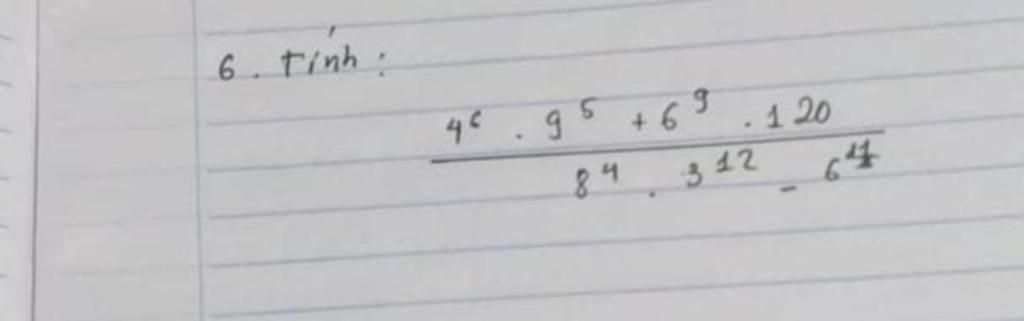 6. Tính:
4⁶ . 9⁵ + 6⁹ . 120
8⁴ . 3¹² - 6¹¹